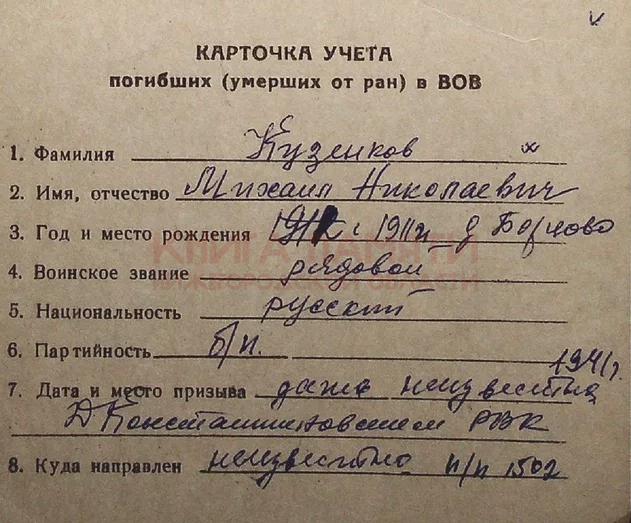 КАРТОЧКА УЧЕТА
погибших (умерших от ран) в ВОВ
1. Фамилия Кузенков
2. Имя, отчество Михаил Николаевич
3. Год и место рождения 1911 д
КНИГА ПАМЯТИ
НИЖЕГОРОДСКОЙ ОБЛАСТИ
4. Воинское звание рядовой
5. Национальность русский
6. Партийность б/п.
1941г.
7. Дата и место призыва неизвестна
РВК
8. Куда направлен неизвестно п/п 1502